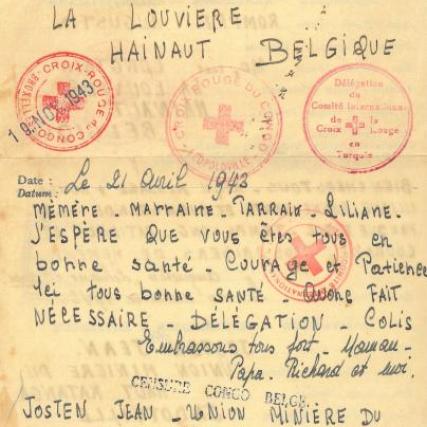 LA LOUVIERE
HAINAUT BELGIQUE
CROIX-ROUGE du CONGO
19 NOV 1943
CROIX-ROUGE DU CONGO
LEOPOLDVILLE
Délégation
du
Comité International
de la
Croix Rouge
en
Turquie
Date : Le 21 Avril 1943
Datum :
MÉMÈRE - MARRAINE - PARRAIN - LILIANE.
J'ESPÈRE QUE VOUS ÊTES TOUS EN
bonne santé - COURAGE et Patience
Ici tous bonne SANTÉ - AVONS FAIT
NÉCESSAIRE - DÉLÉGATION - COLIS
Embrassons tous fort - Maman -
Papa - Richard et moi.
CENSURE CONGO BELGE
JOSTEN JEAN - UNION MINIÈRE DU